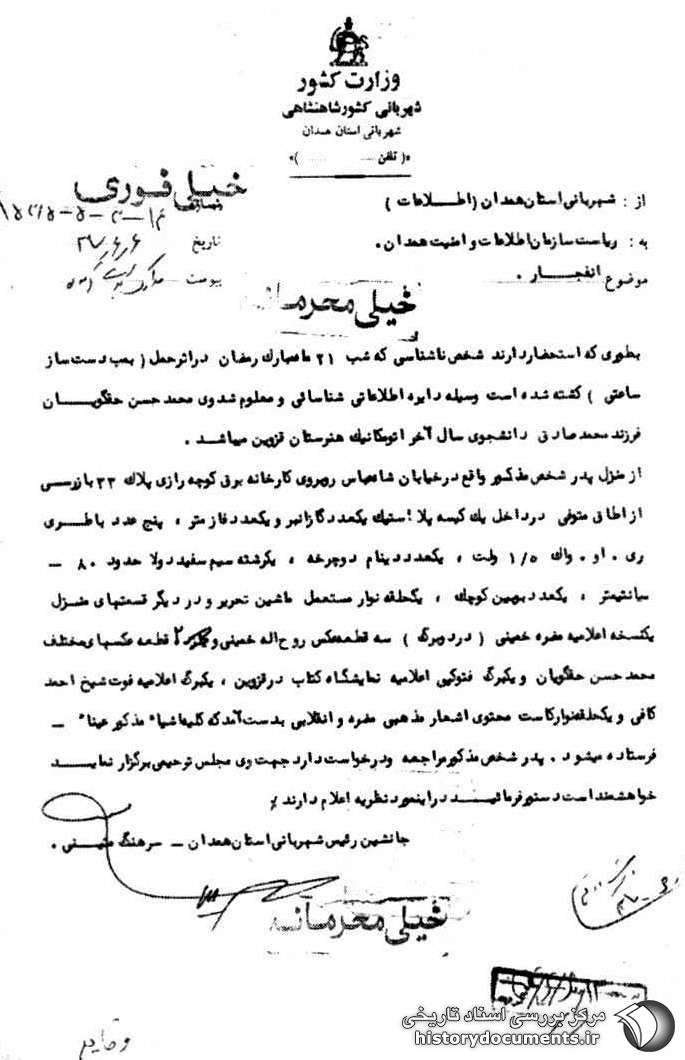 وزارت کشور
شهربانی کشور شاهنشاهی
شهربانی استان همدان
(تلفن )
خیلی فوری
شماره
تاریخ
پیوست
از : شهربانی استان همدان (اطلاعات )
به : ریاست سازمان اطلاعات و امنیت همدان .
موضوع انفجار .
خیلی محرمانه
بطوری که استحضار دارند شخص ناشناسی که شب ۲۱ ماه مبارک رمضان در اثر حمل ( بمب دست ساز
ساعتی ) کشته شده است وسیله دایره اطلاعاتی شناسائی و معلوم شد وی محمد حسن حقگویان
فرزند محمد صادق دانشجوی سال آخر اتومکانیک هنرستان قزوین میباشد .
از منزل پدر شخص مذکور واقع در خیابان شاه عباس روبروی کارخانه برق کوچه رازی پلاک ۲۳ بازرسی
از اطاق متوفی در داخل یک کیسه پلاستیک یکعدد گازانبر و یکعدد فازمتر ، پنج عدد باطری
ری . او . واک ۱/۵ ولت ، یکعدد دینام دوچرخه ، یکرشته سیم سفید دولا حدود ۸۰ –
سانتیمتر ، یکعدد دوربین کوچک ، یکحلقه نوار مستعمل ماشین تحریر و در دیگر قسمتهای منزل
یکنسخه اعلامیه مضره خمینی ( در دو برگ ) سه قطعه عکس روح اله خمینی و ۲ قطعه عکسهای مختلف
محمد حسن حقگویان و یکبرگ فتوکپی اعلامیه نمایشگاه کتاب در قزوین ، یکبرگ اعلامیه فوت شیخ احمد
کافی و یکحلقه نوار کاست محتوی اشعار مذهبی مضره و انقلابی بدست آمد که کلیه اشیاء مذکور عینا" –
فرستاده میشود . پدر شخص مذکور مراجعه و درخواست دارد جهت وی مجلس ترحیمی برگزار نماید
خواهشمند است دستور فرمائید در اینمورد نظریه اعلام دارند ٪
جانشین رئیس شهربانی استان همدان – سرهنگ
خیلی محرمانه
وقایع
مرکز بررسی اسناد تاریخی
historydocuments.ir